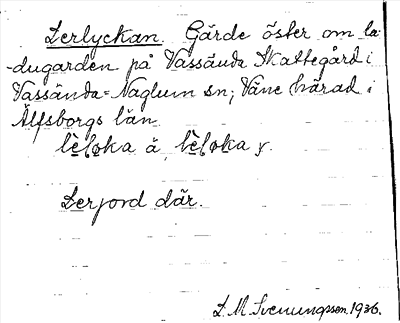 Lerlyckan. Gärde öster om la-
-dugarden på Vassända Skattegård i
Vassända-Naglum sn; Väne härad i
Älfsborgs län.
Lerjord där.
L. M. Svenungsson. 1936.